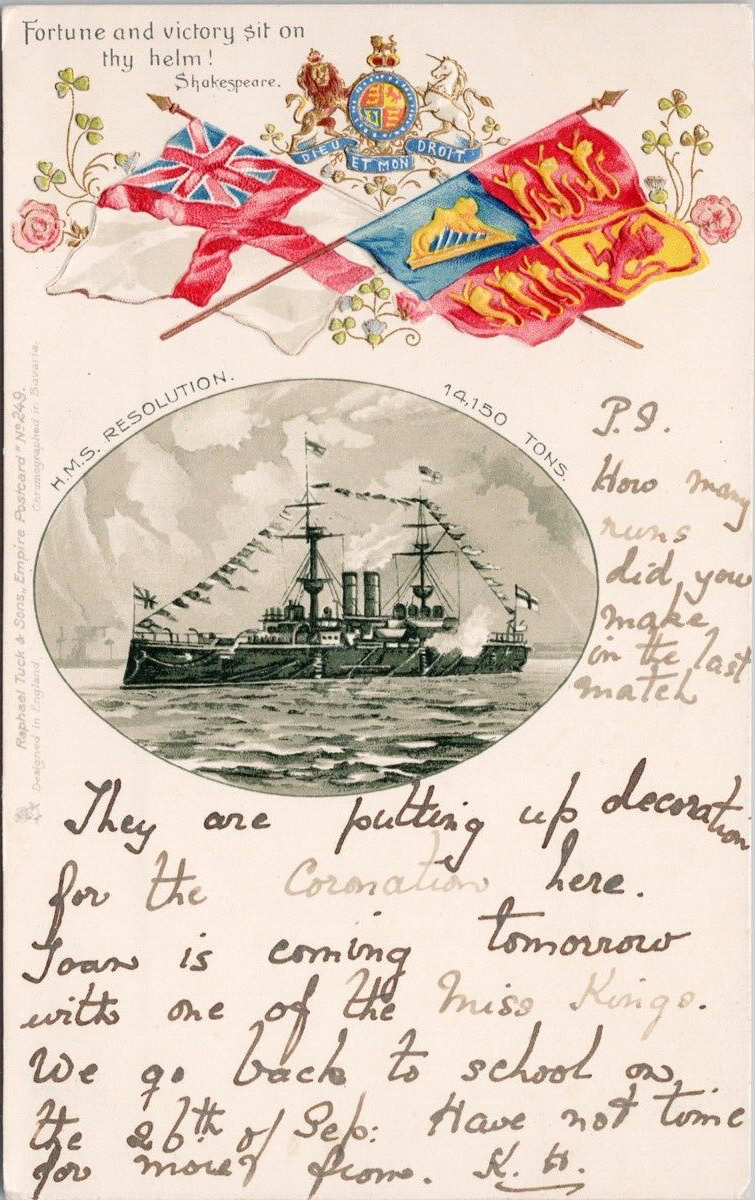 Fortune and victory sit on
thy helm!
Shakespeare.
DIEU ET MON DROIT.
H.M.S. RESOLUTION.
14,150 TONS.
Raphael Tuck & Sons „Empire Postcard" No 249.
Designed in England.
Chromographed in Bavaria.
P.S.
How many
runs
did you
make
in the last
match
They are putting up decoration
for the Coronation here.
Joan is coming tomorrow
with one of the Miss Kings.
We go back to school on
the 26th of Sep: Have not time
for more from. K. H.